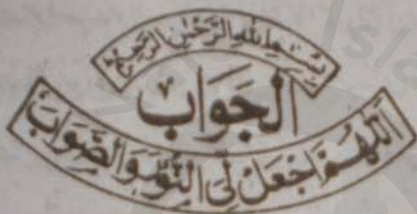 بِسْمِ اللهِ الرَّحْمٰنِ الرَّحِيْمِ
الجَوَابُ
اَللّٰهُمَّ اجْعَلْ لِّىَ النُّوْرَ وَالصَّوَابَ
Isla